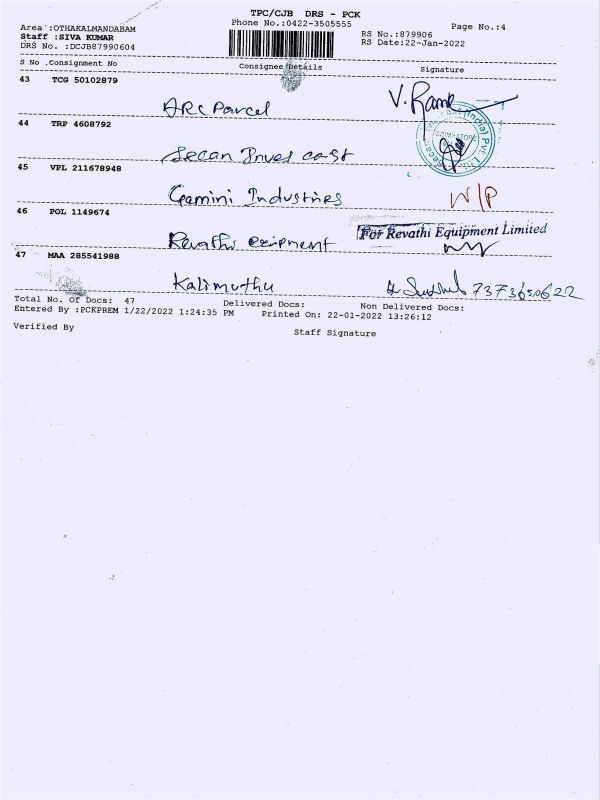 TPC/CJB DRS - PCK
Phone No.:0422-3505555
Page No.:4
Area :OTHAKALMANDABAM
Staff :SIVA KUMAR
DRS No. :DCJB87990604
RS No.:879906
RS Date:22-Jan-2022
S No .Consignment No Consignee Details Signature
43 TCG 50102879
ARC Parcel V. Ram
44 TRP 4608792
Secan Inves cast
45 VPL 211678948
Gemini Industries W/P
46 POL 1149674
Revathi equipment For Revathi Equipment Limited
47 MAA 285541988
Kalimuthu 7373650622
Total No. Of Docs: 47 Delivered Docs: Non Delivered Docs:
Entered By :PCKPREM 1/22/2022 1:24:35 PM Printed On: 22-01-2022 13:26:12
Verified By Staff Signature